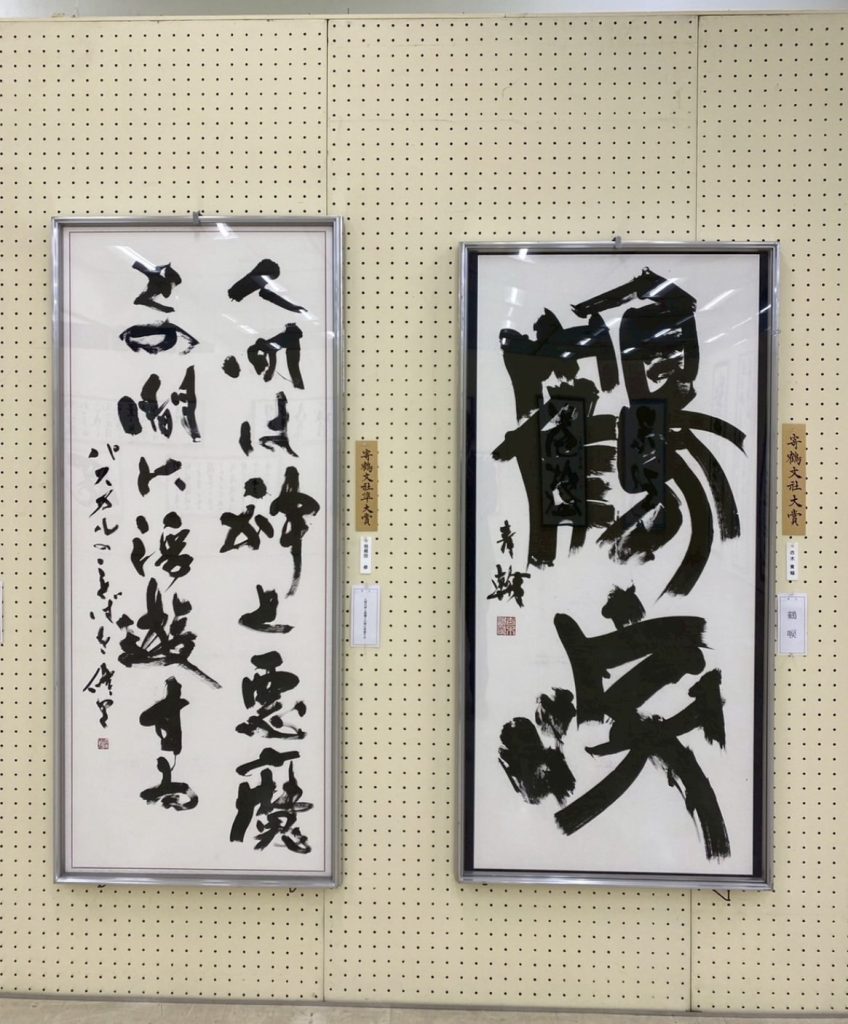 寄鶴文社大賞
鶴唳
鶴唳
青
寄鶴文社準大賞
人間は神と悪魔
との間に浮遊する
パスカルのことばを